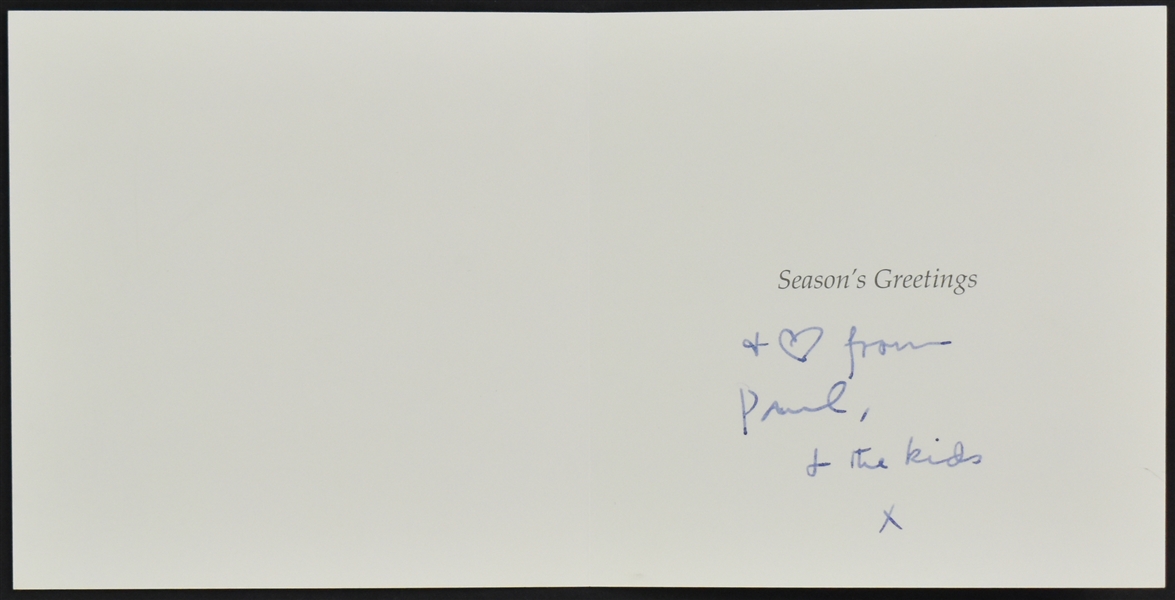 Season's Greetings
& ♡ from
Paul,
& the kids
x